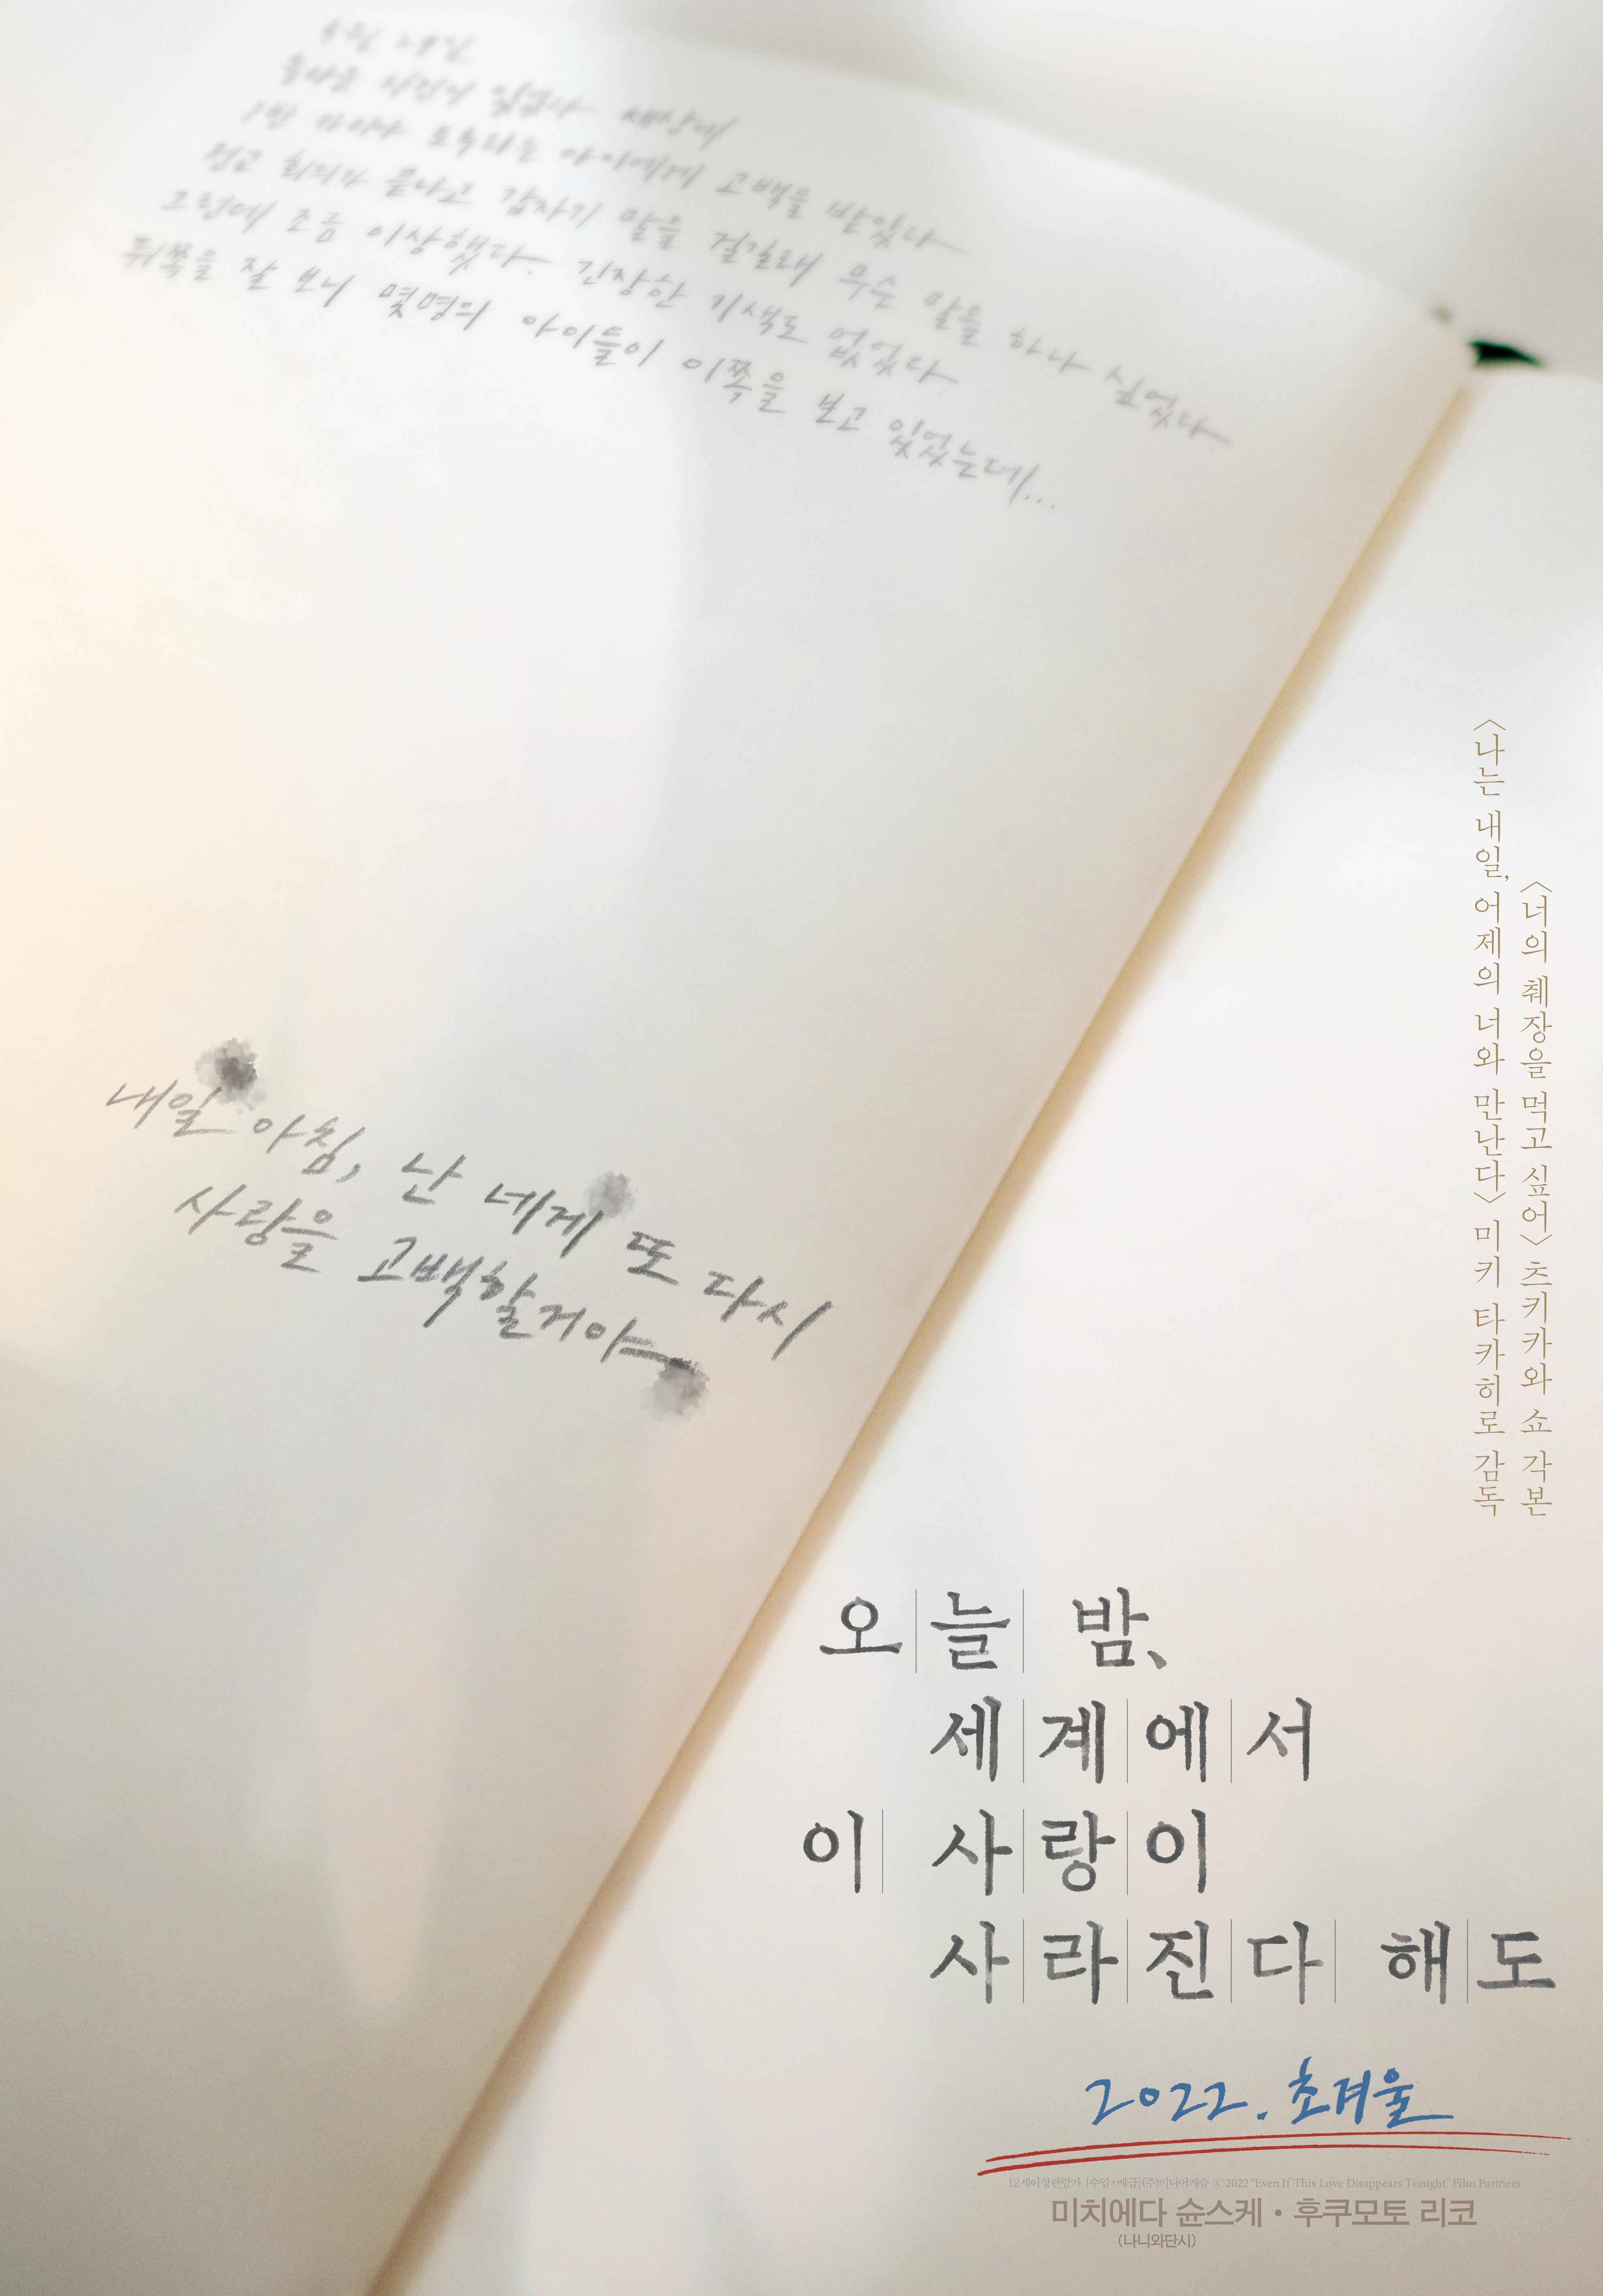 놀라운 이벤트 있었다. 세상에
1반 카미야 토루라는 아이에게 고백을 받았다
회의가 끝나고 갑자기 말을 걸길래 무슨 말을 하나 싶었다
그런데 조금 이상했다. 긴장한 기색도 없었다
뒤쪽을 잘 보니 몇명의 아이들이 이쪽을 보고 있었는데...
내일 아침, 난 네게 또 다시
사랑을 고백할거야
〈너의 췌장을 먹고 싶어〉 츠키카와 쇼 각본
〈나는 내일, 어제의 너와 만난다〉 미키 타카히로 감독
오늘 밤,
세계에서
이 사랑이
사라진다 해도
2022. 초겨울
12세이상관람가 |수입·배급|(주)미디어캐슬 ⓒ2022 "Even If This Love Disappears Tonight" Film Partners
미치에다 슌스케 · 후쿠모토 리코
(나니와단시)